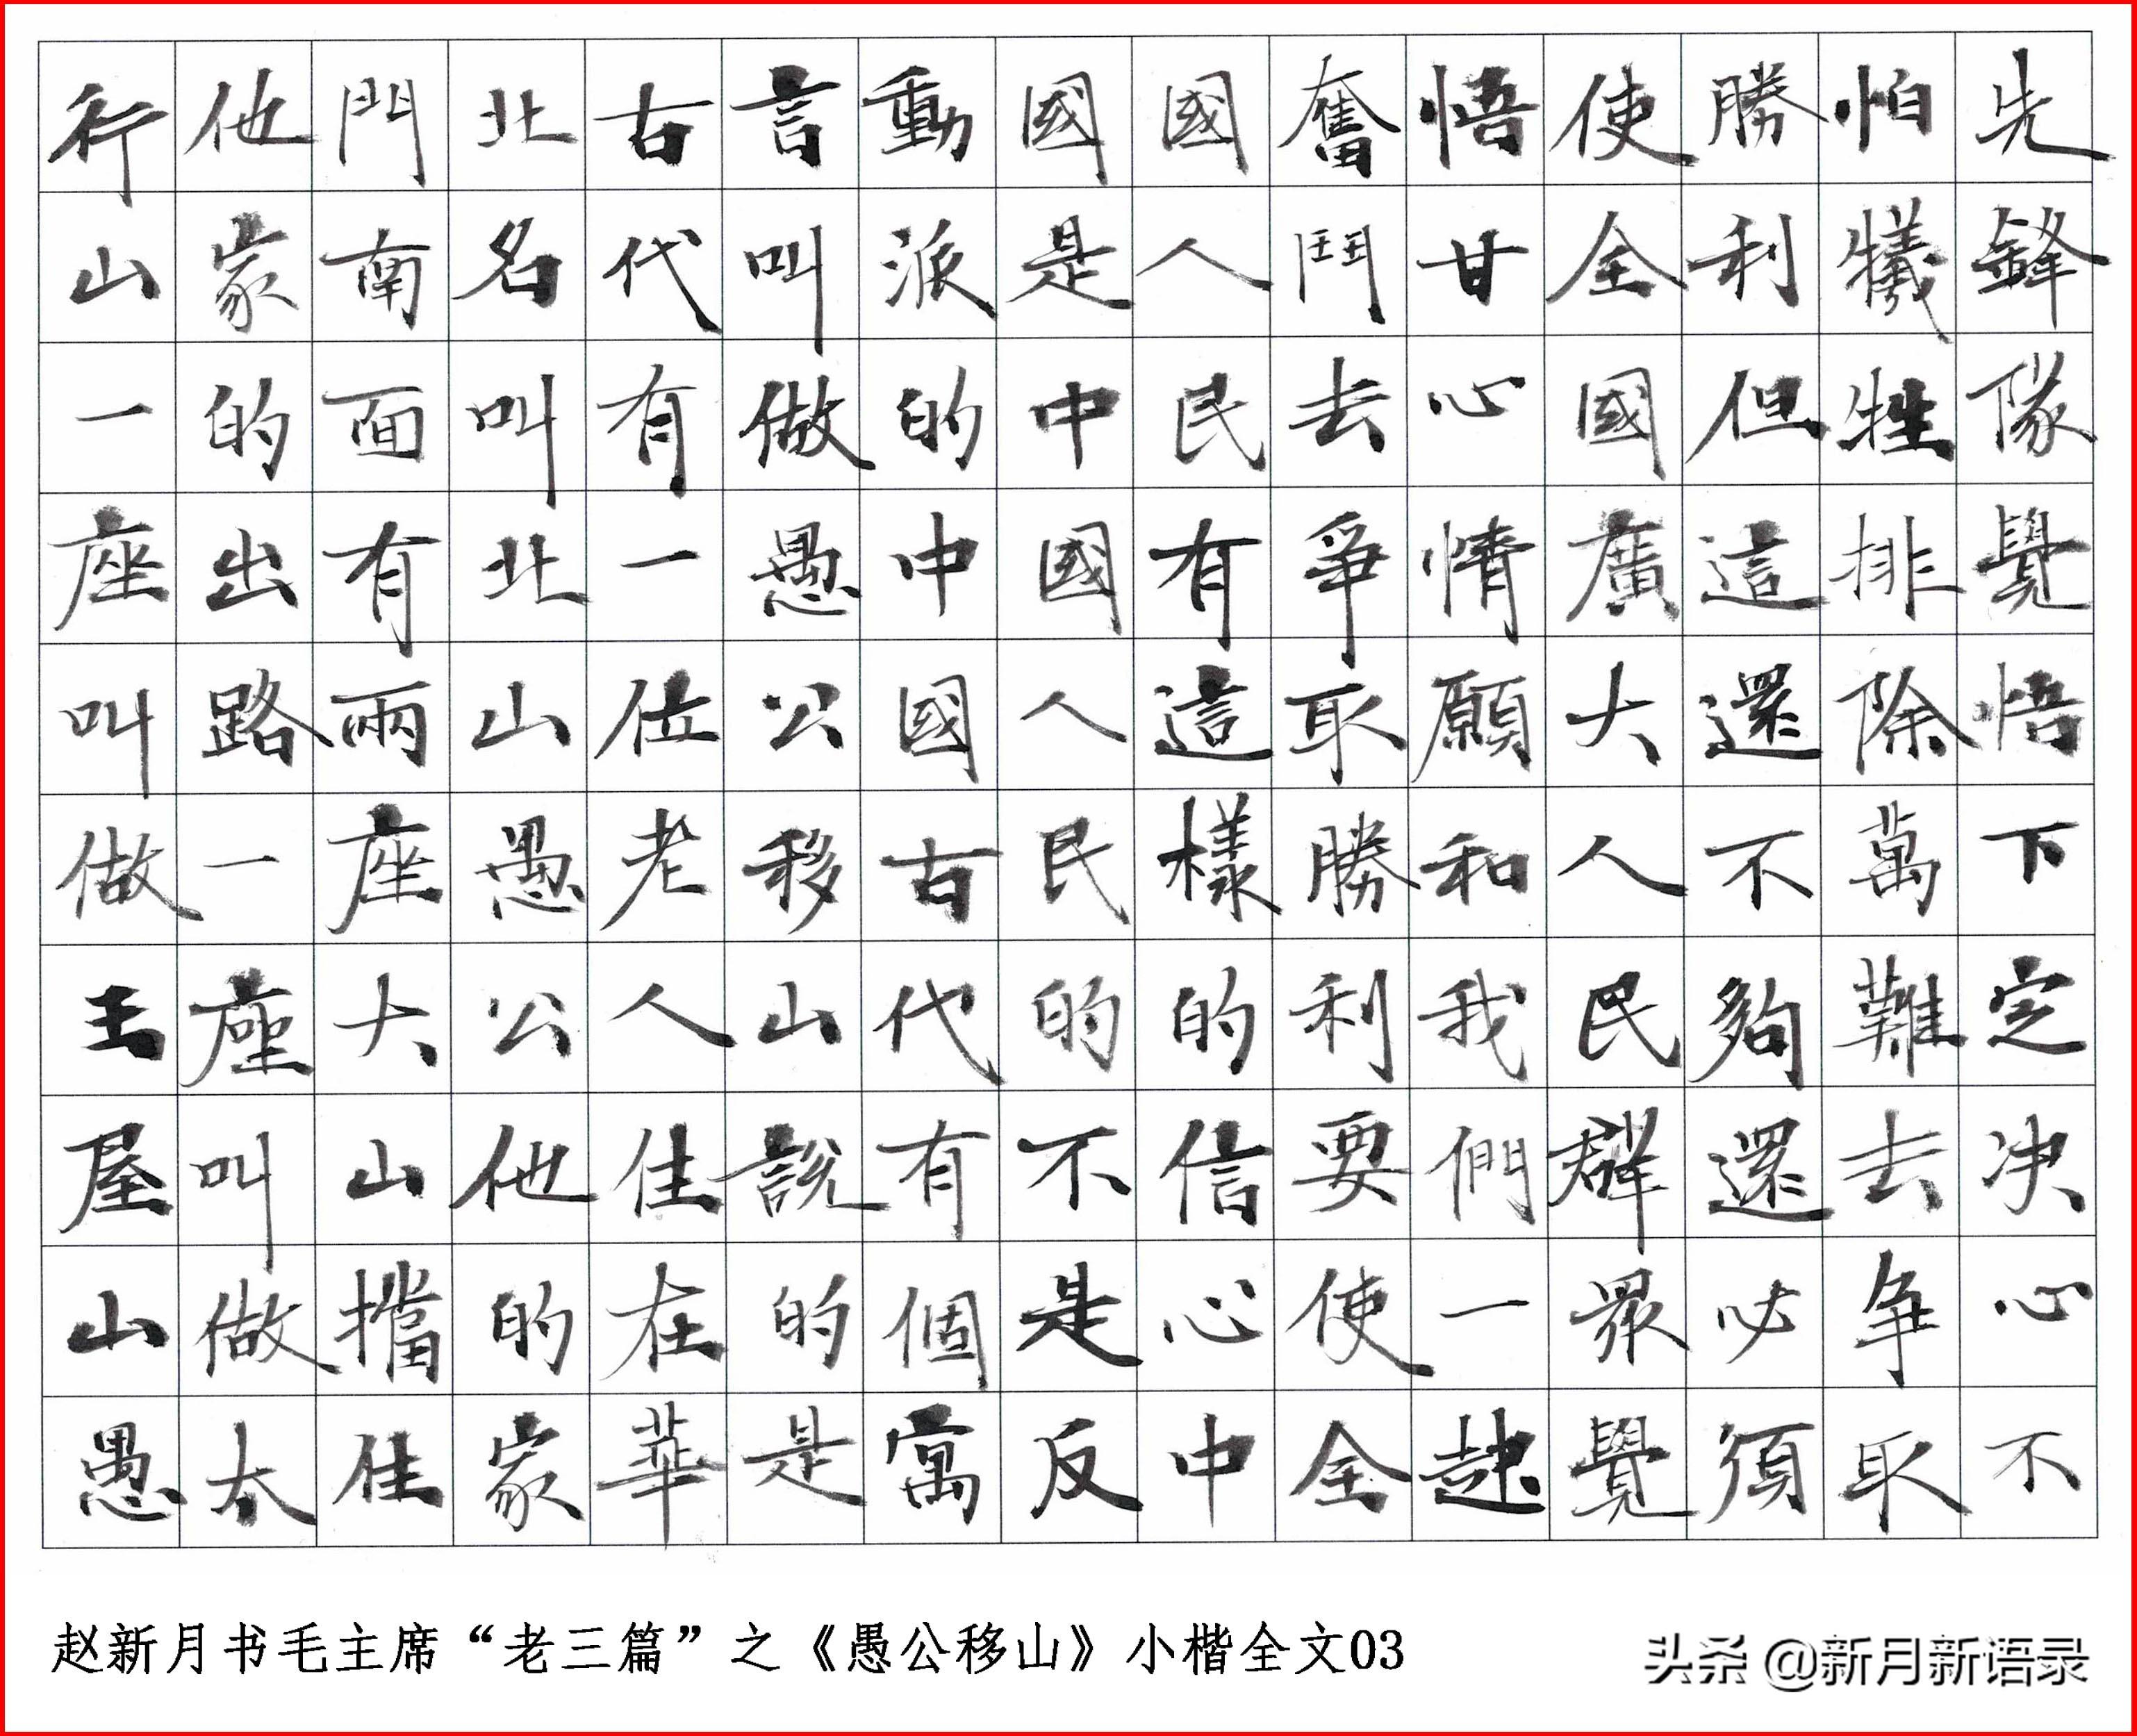 先鋒隊覺悟下定决心不
怕犧牲排除萬難去争取
勝利但這還不夠還必須
使全國廣大人民群眾覺
悟甘心情願和我們一起
奮鬥去爭取勝利要使全
國人民有這樣的信心中
國是中國人民的不是反
動派的中國古代有個寓
言叫做愚公移山說的是
古代有一位老人住在華
北名叫北山愚公他的家
門南面有兩座大山擋住
他家的出路一座叫做太
行山一座叫做王屋山愚
赵新月书毛主席“老三篇”之《愚公移山》小楷全文03
头条 @新月新语录